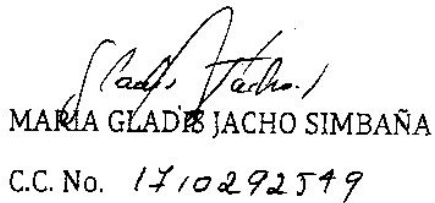 Gladis Jacho
MARÍA GLADIS JACHO SIMBAÑA
C.C. No. 1710292549